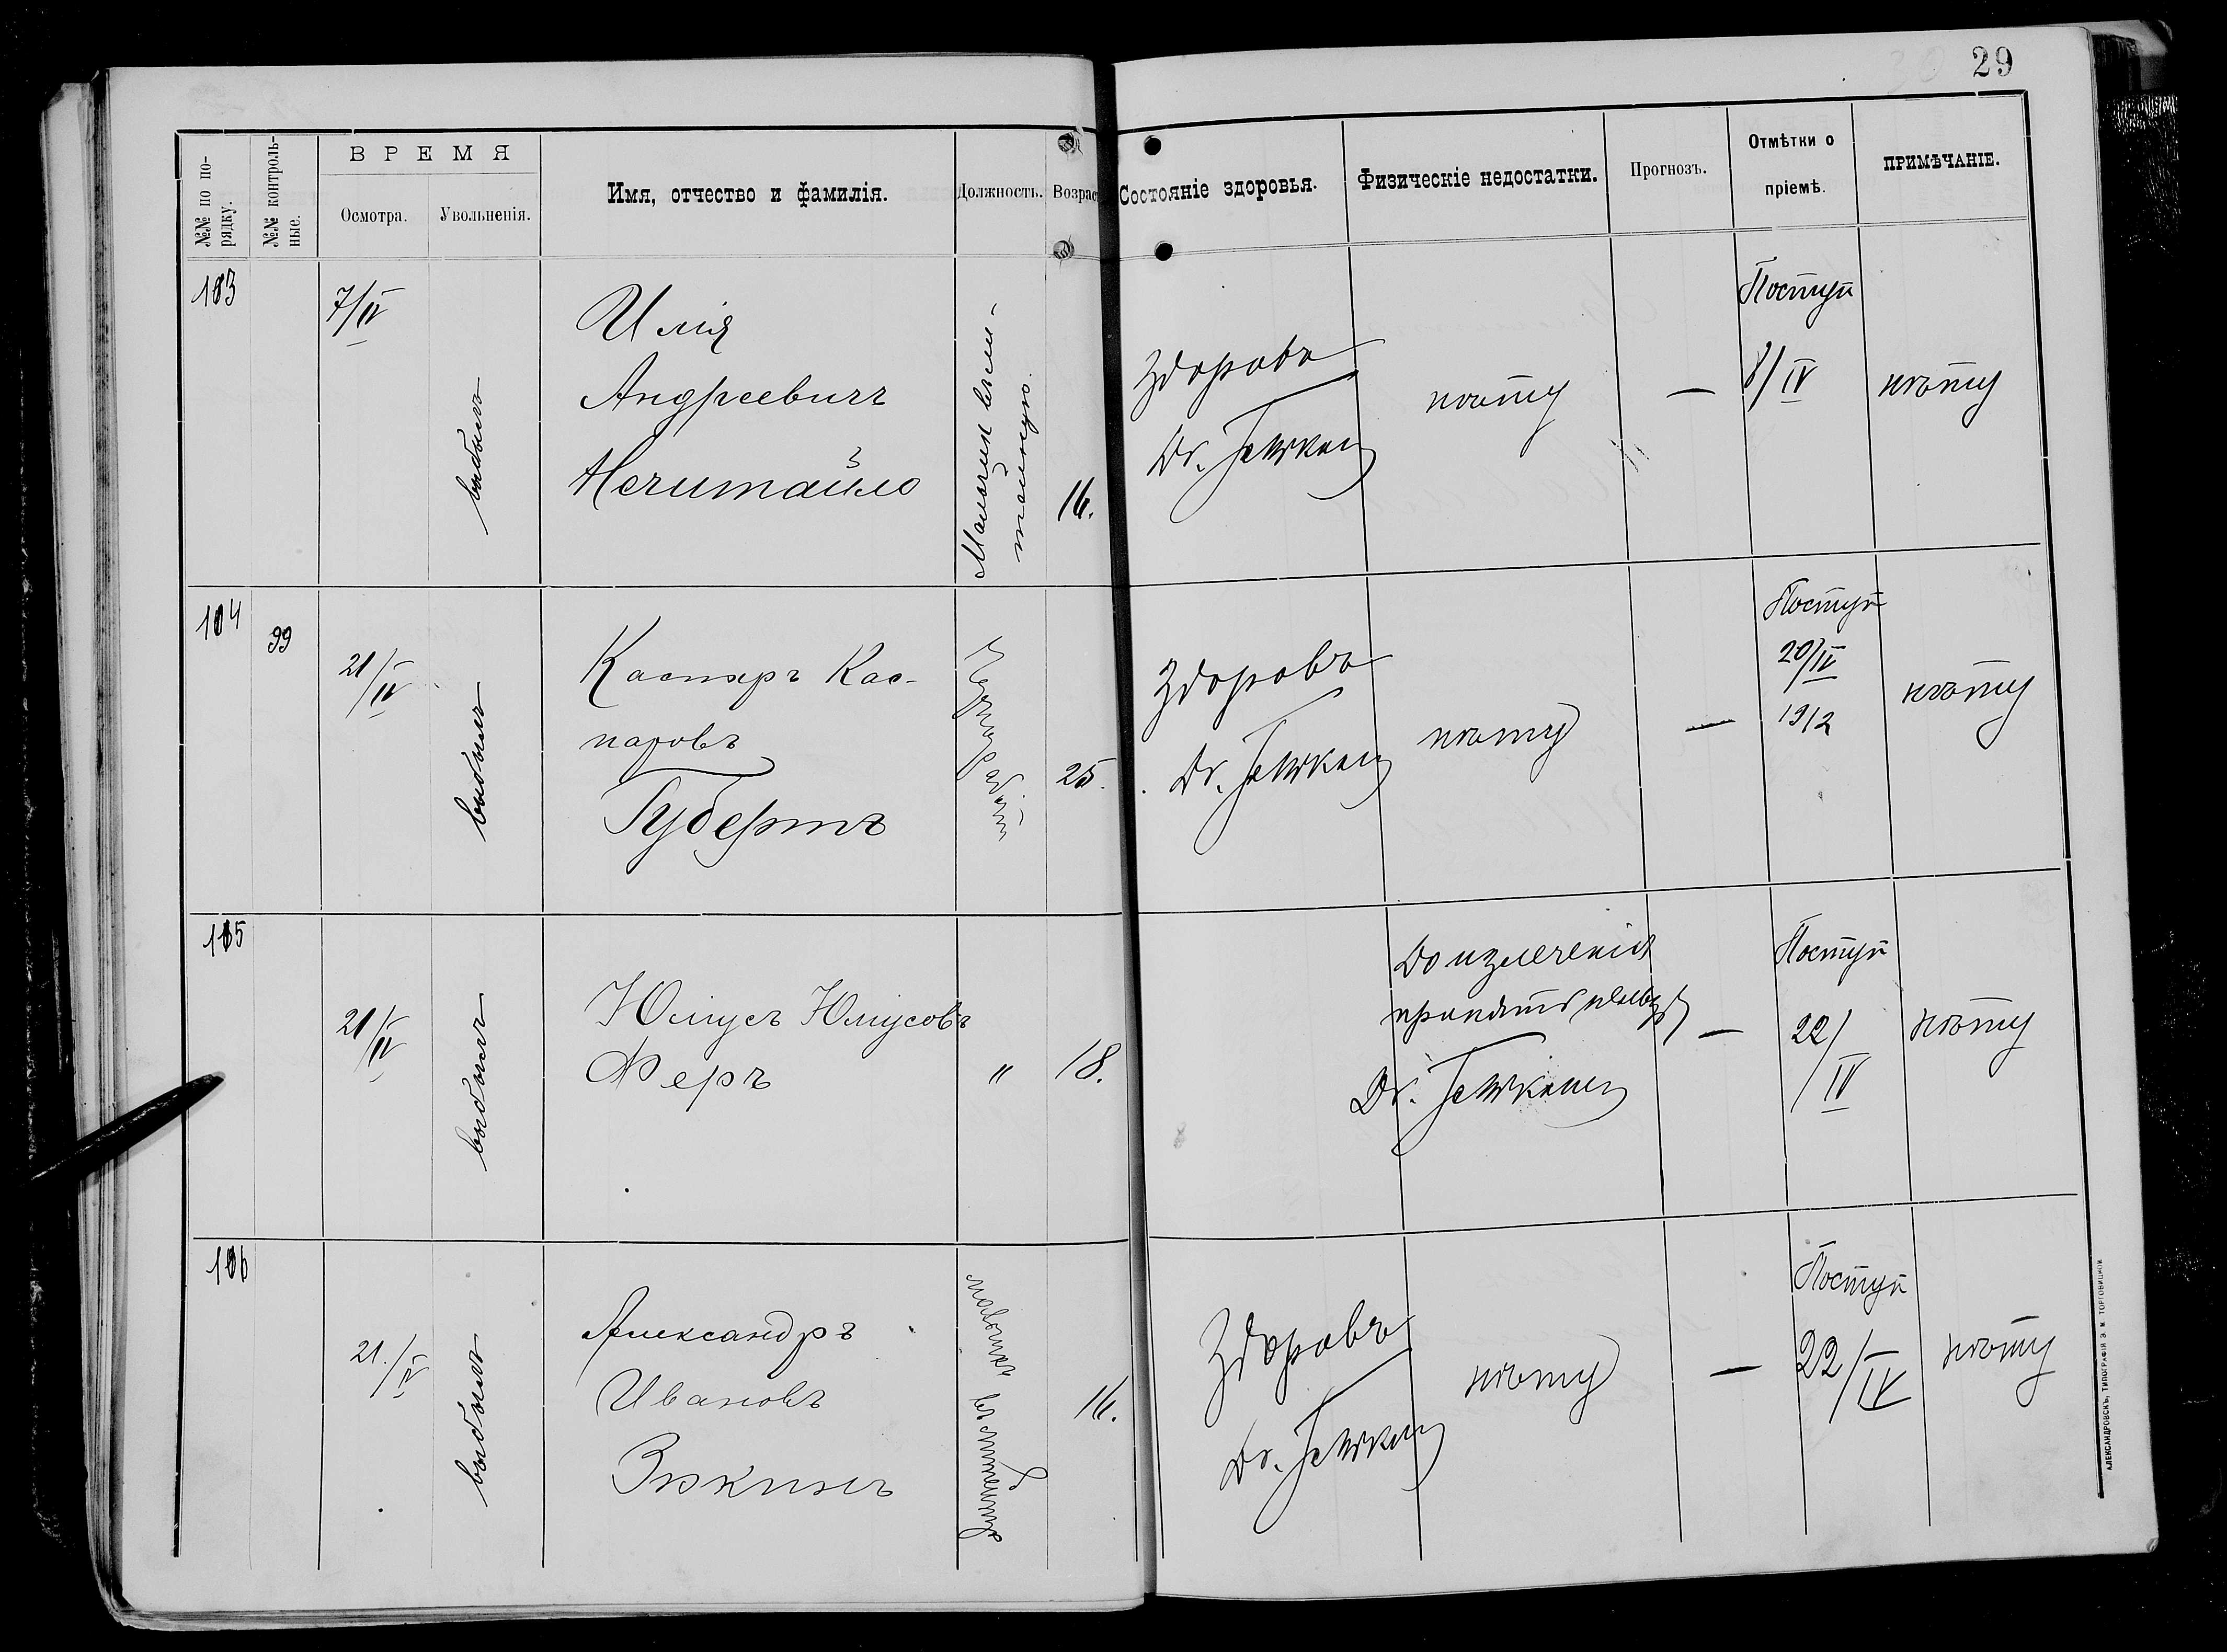 29
№№ по по-
рядку.
№№ контроль-
ные.
ВРЕМЯ
Осмотра.
Увольненія.
Имя, отчество и фамилія.
Должность.
Возрас
Состояніе здоровья.
Физическіе недостатки.
Прогнозъ.
Отмѣтки о
пріемѣ.
ПРИМѢЧАНІЕ.
103
7/IV
выбылъ
Илія
Андреевичъ
Нечитайло
Мальчик въ ли-
тейную.
16.
Здоровъ
Dr.
нѣту
—
Поступ
8/IV
нѣту
104
99
21/IV
выбылъ
Каспаръ Кас-
паровъ
Губертъ
25.
Здоровъ
Dr.
нѣту
—
Поступ
20/IV
1912
нѣту
105
21/IV
выбылъ
Юліусъ Юліусовъ
Феръ
"
18.
До излеченія
принять нельзя
Dr.
—
Поступ
22/IV
нѣту
106
21./IV
выбылъ
Александръ
Ивановъ
Зюкинъ
мальчикъ въ литейную
16.
Здоровъ
Dr.
нѣту
—
Поступ
22/IV
нѣту
АЛЕКСАНДРОВСКЪ, ТИПОГРАФІЯ Э. М. ТОРГОВИЦКОЙ